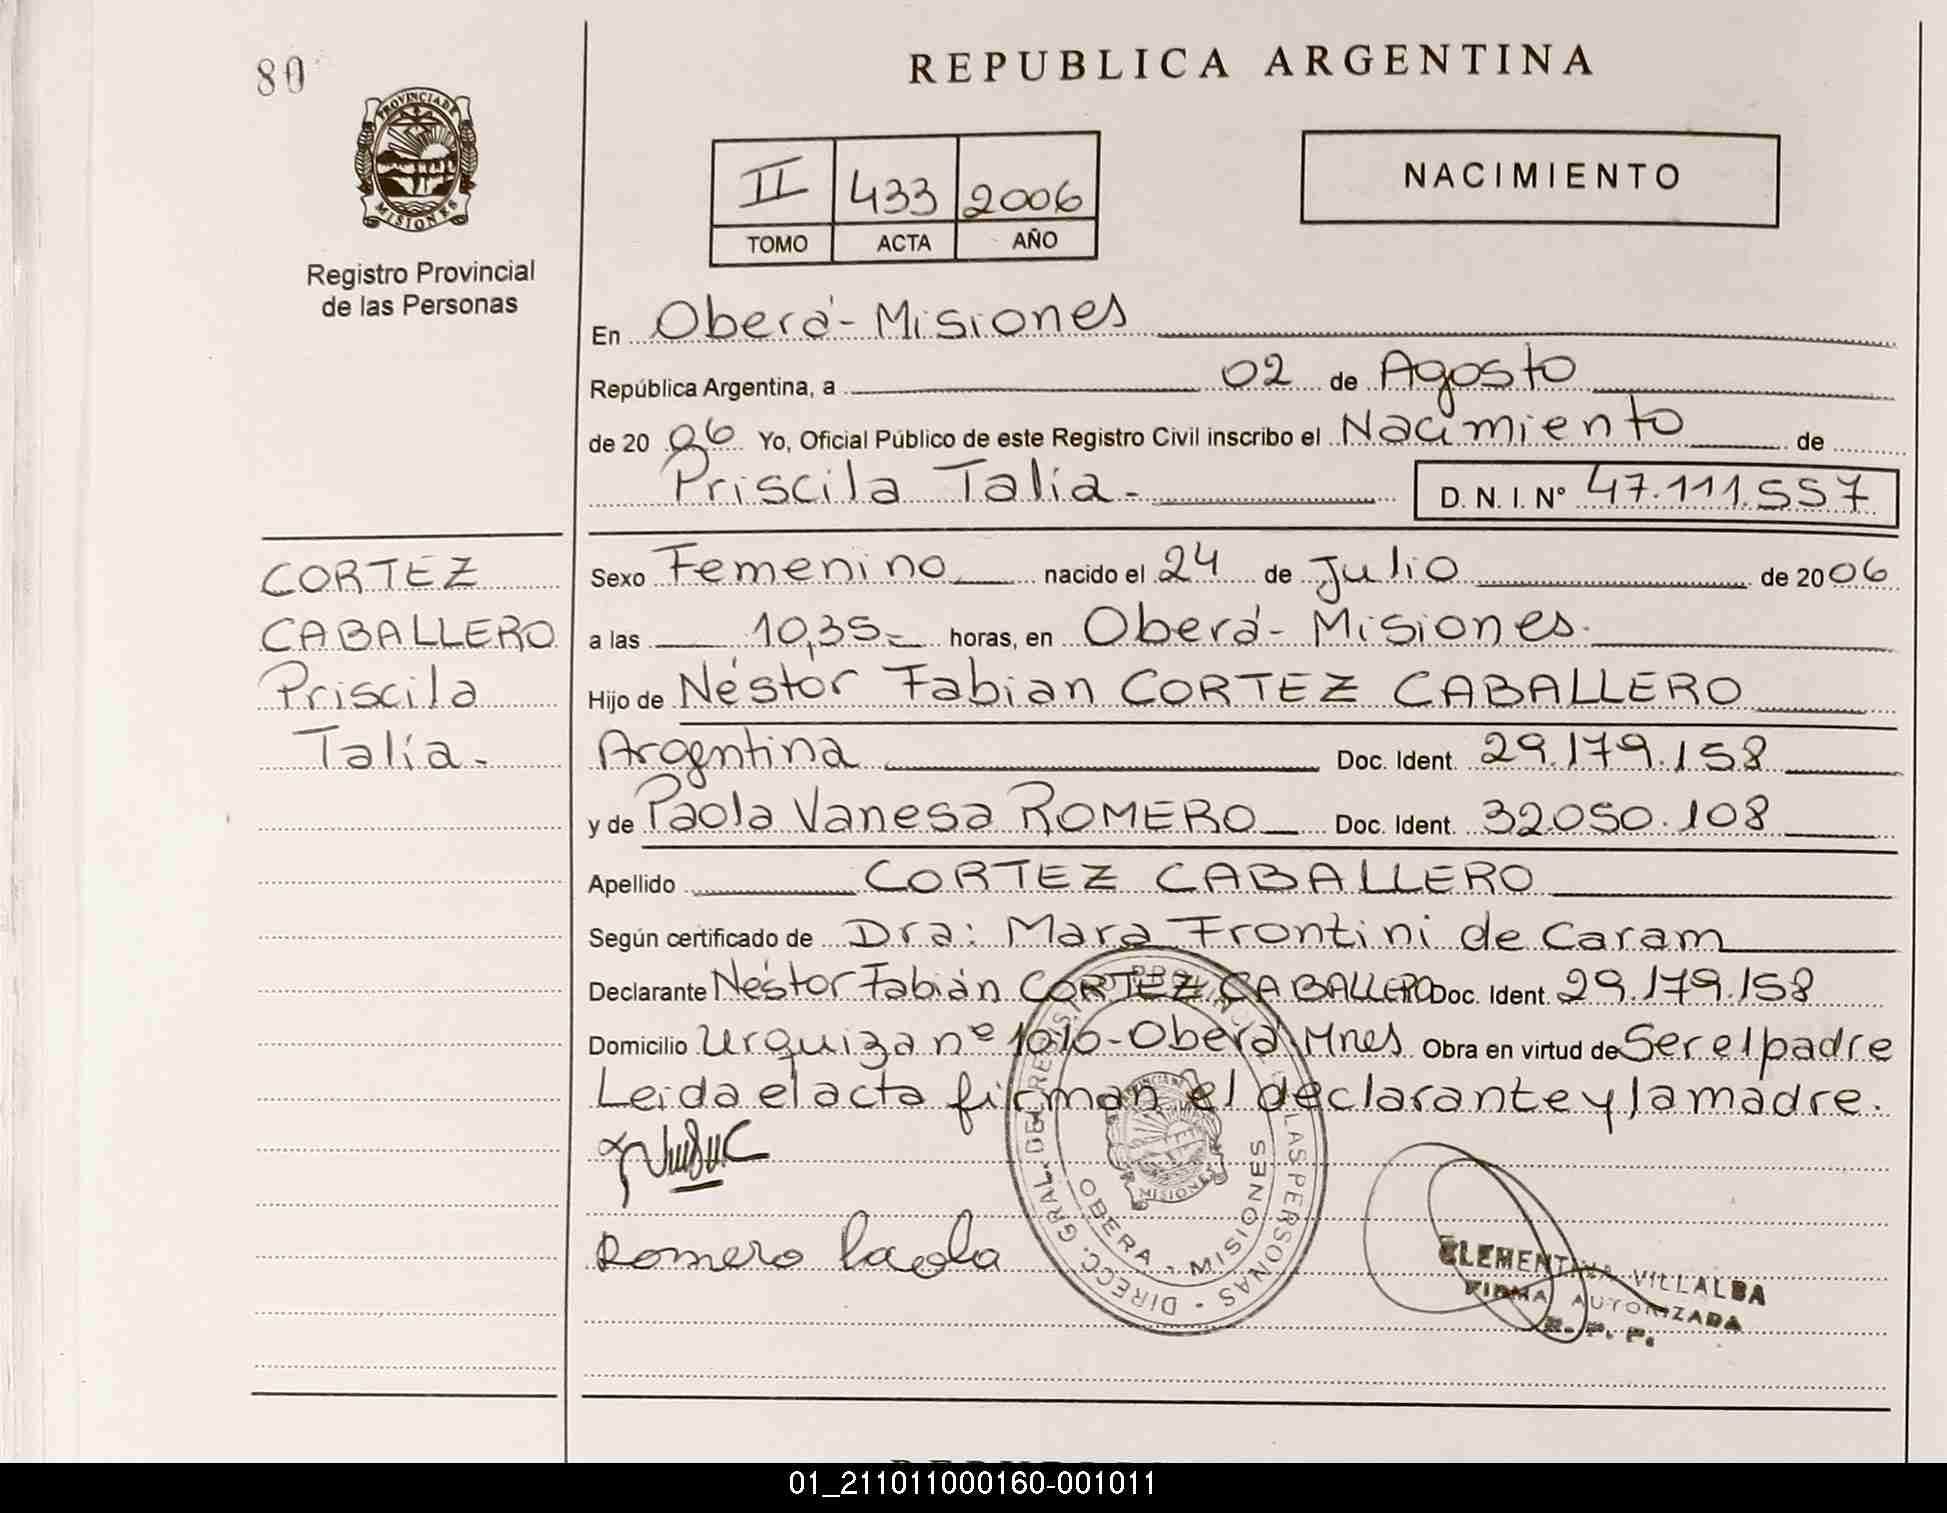 80
PROVINCIA DE
MISIONES
Registro Provincial
de las Personas
REPUBLICA ARGENTINA
II 433 2006
TOMO ACTA AÑO
NACIMIENTO
En Oberá - Misiones
República Argentina, a 02 de Agosto
de 20 06 Yo, Oficial Público de este Registro Civil inscribo el Nacimiento de
Priscila Talía - D. N. I. Nº 47.111.557
CORTEZ
CABALLERO
Priscila
Talía -
Sexo Femenino nacido el 24 de Julio de 20 06
a las 10,35 - horas, en Oberá - Misiones.
Hijo de Néstor Fabian CORTEZ CABALLERO
Argentina Doc. Ident. 29.179.158
y de Paola Vanesa ROMERO Doc. Ident. 32.050.108
Apellido CORTEZ CABALLERO
Según certificado de Dra: Mara Frontini de Caram
Declarante Néstor Fabián CORTEZ CABALLERO Doc. Ident. 29.179.158
Domicilio Urquiza nº 1016 - Oberá Mnes Obra en virtud de Ser el padre
Leida el acta firman el declarante y la madre.
Romero Paola
DIRECC. GRAL. DEL REGISTRO PROVINCIAL DE LAS PERSONAS -
OBERA - MISIONES
PROVINCIA DE
MISIONES
CLEMENTINA VILLALBA
FIRMA AUTORIZADA
R. P. P.
01_211011000160-001011